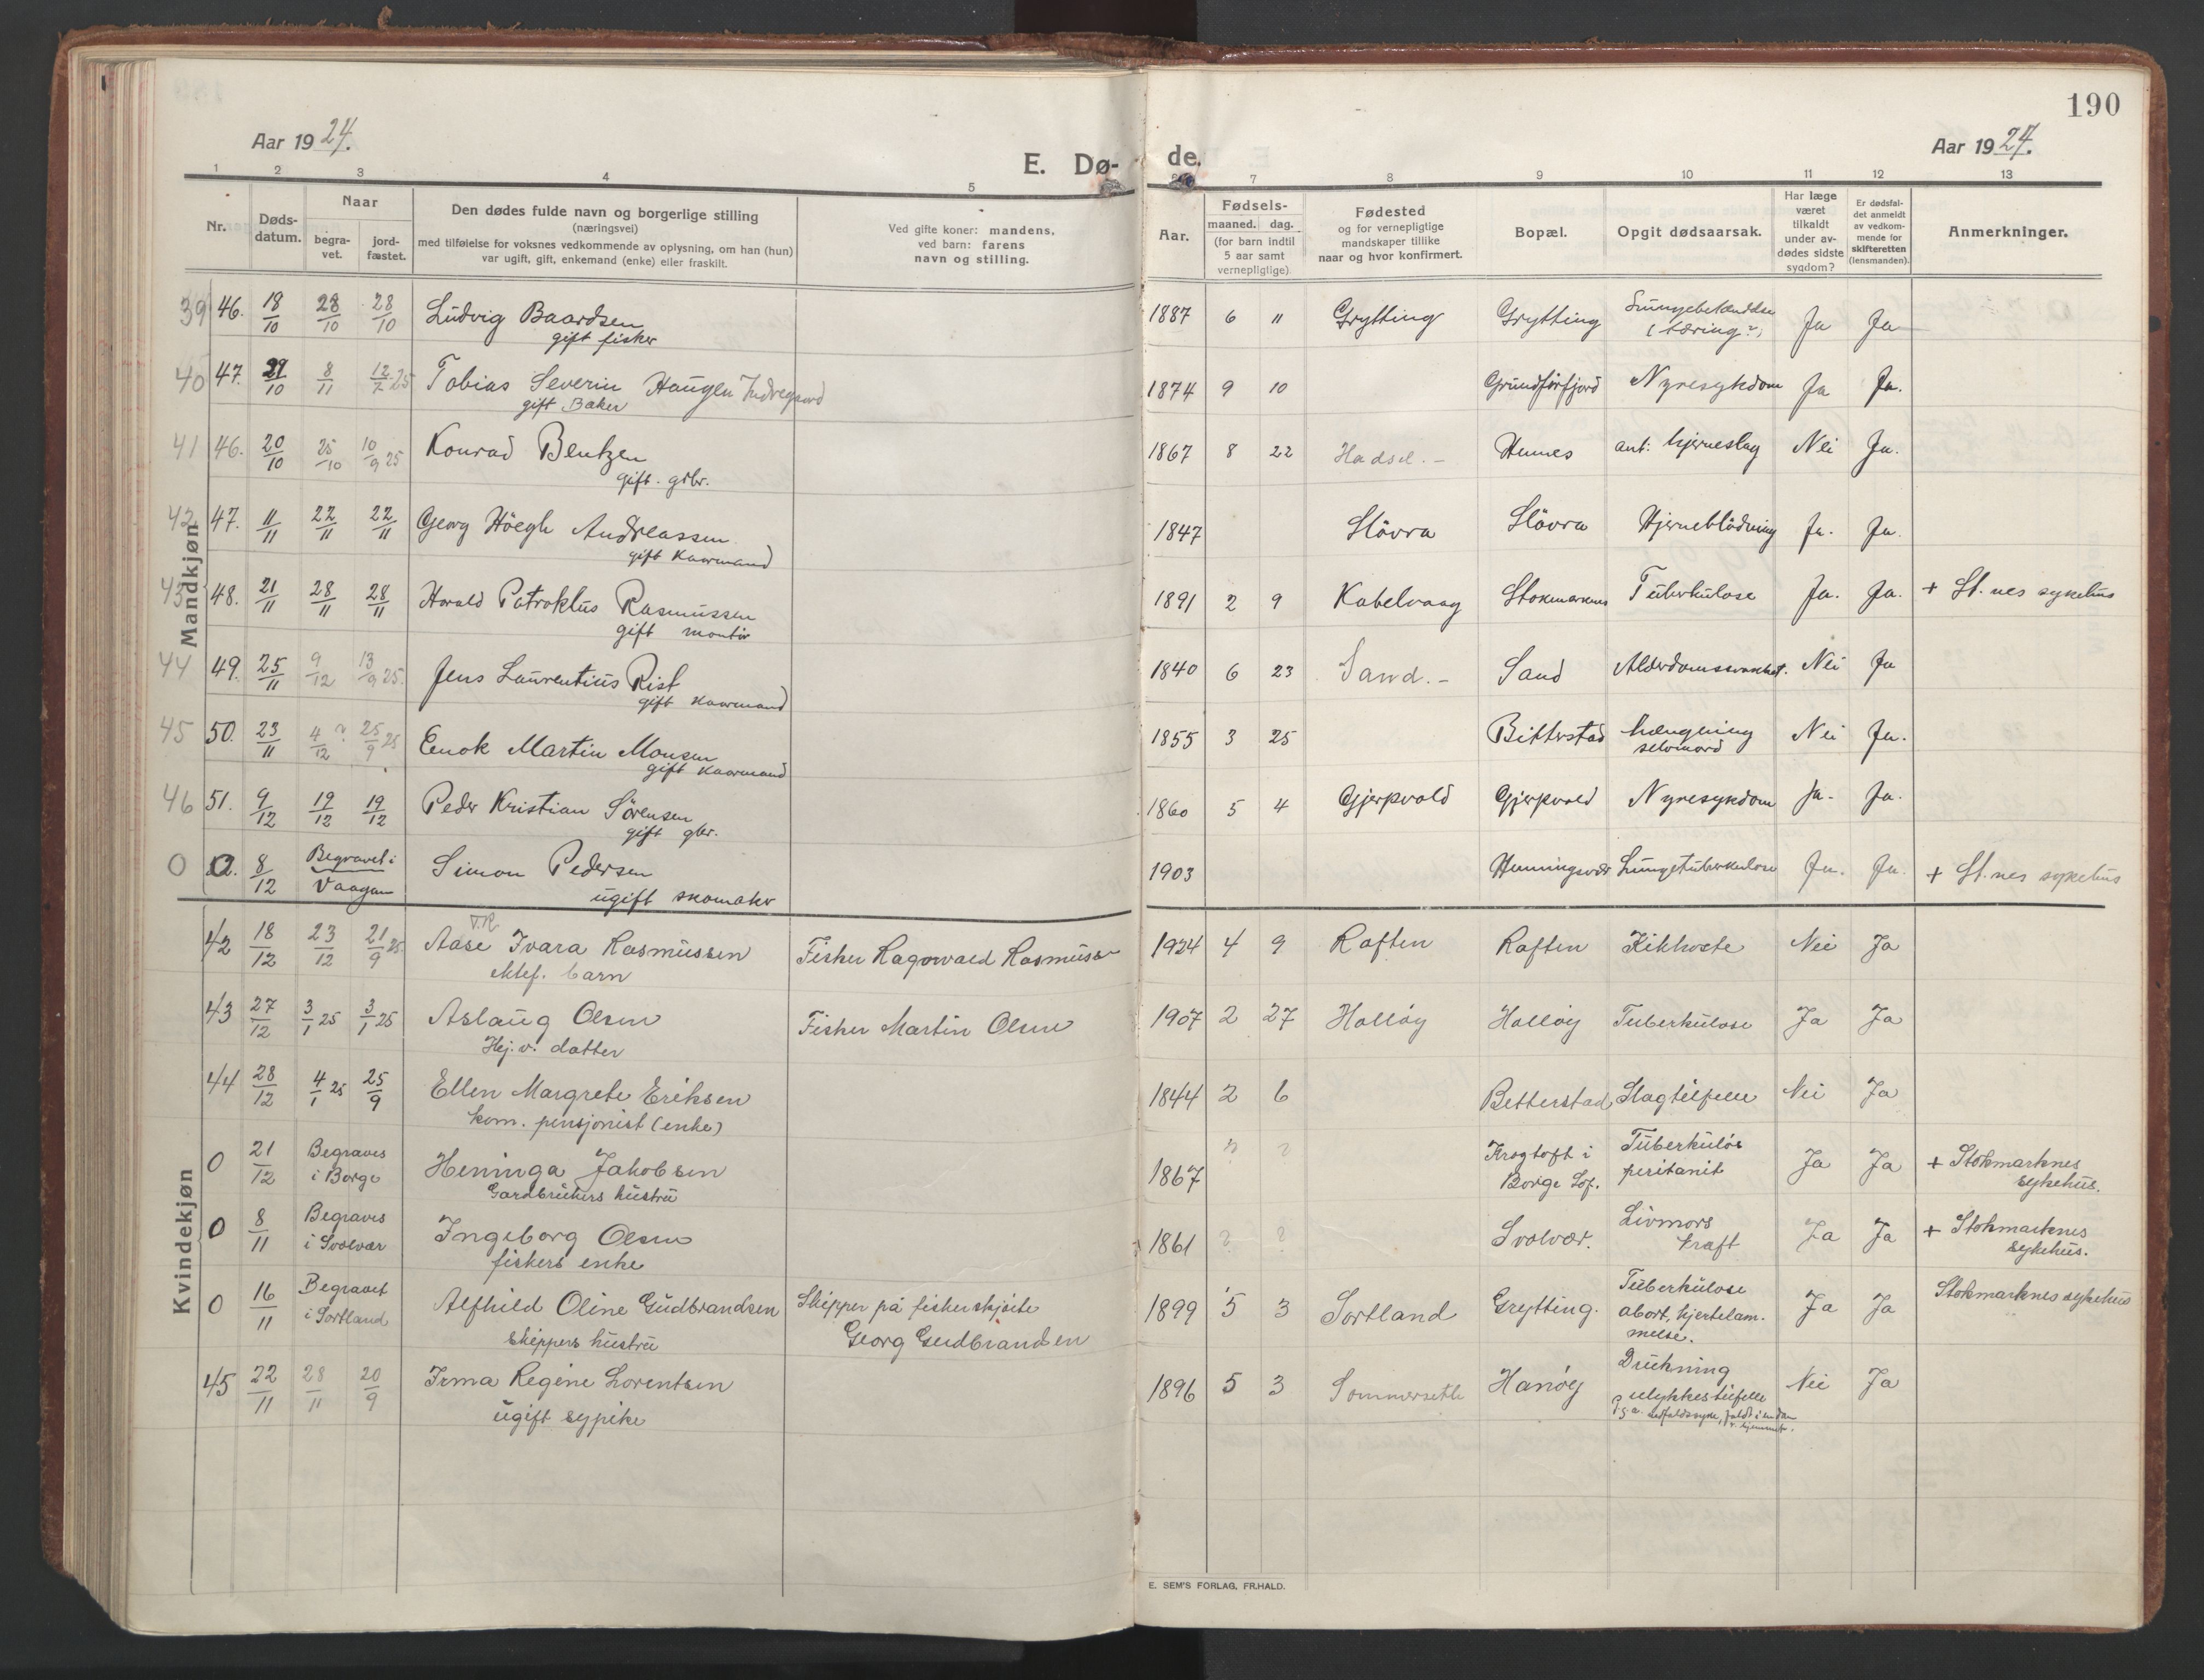 190
Aar 1924.
E. Dø-
de.
Aar 1924.
1 2 3 4 5 6 7 8 9 10 11 12 13
Nr.
Døds-
datum.
Naar
begra-
vet.
jord-
fæstet.
Den dødes fulde navn og borgerlige stilling
(næringsvei)
med tilføielse for voksnes vedkommende av oplysning, om han (hun)
var ugift, gift, enkemand (enke) eller fraskilt.
Ved gifte koner: mandens,
ved barn: farens
navn og stilling.
Aar.
Fødsels-
maaned. dag.
(for barn indtil
5 aar samt
vernepligtige)
Fødested
og for vernepligtige
mandskaper tillike
naar og hvor konfirmert.
Bopæl.
Opgit dødsaarsak.
Har læge
været
tilkaldt
under av-
dødes sidste
sygdom?
Er dødsfal-
det anmeldt
av vedkom-
mende for
skifteretten
(lensmanden).
Anmerkninger.
Mandkjøn
39 46. 18/10 28/10 28/10 Ludvig Baardsen 1887 6 11 Grytting Grytting Lungebetændelse Ja Ja
gift fisker (tæring?)
40 47. 29/10 8/11 12/2 25 Tobias Severin Haugen Indregaard 1874 9 10 Grundførfjord Nyresykdom Ja Ja.
gift Baker
41 46. 20/10 25/10 10/9 25 Konrad Bentzen 1867 8 22 Hadsel. - Hennes ant: hjerneslag Nei Ja.
gift. gbr.
42 47. 11/11 22/11 22/11 Georg Höegh Andreassen 1847 Slövra Slövra Hjerneblödning Ja. Ja.
gift Kaarmand
43 48. 21/11 28/11 28/11 Harald Patroklus Rasmussen 1891 2 9 Kabelvaag Stokmarknes Tuberkulose Ja. Ja. + St.nes sykehus
gift montør
44 49. 25/11 9/12 13/9 25. Jens Laurentius Rist 1840 6 23 Sand. - Sand Alderdomssvakhet. Nei Ja
gift Kaarmand
45 50. 23/11 4/12 ? 25/9 25 Enok Martin Monsen 1855 3 25 Bitterstad hængning Nei Ja.
gift Kaarmand selvmord
46 51. 9/12 19/12 19/12 Peder Kristian Sörensen 1860 5 4 Gjerpvold Gjerpvold Nyresykdom Ja. Ja.
gift gbr.
0 0. 8/12 Begravet i Vaagan Simon Pedersen 1903 Henningsvær Lungetuberkulose Ja. Ja. + St.nes sykehus
ugift skomaker
Kvindekjøn
V.R.
42 18/12 23/12 21/9 25 Aase Ivara Rasmussen Fisker Ragnvald Rasmussen 1924 4 9 Raften Raften Kikhoste Nei Ja
ektef. barn
43 27/12 3/1 25 3/1 25 Aslaug Olsen Fisker Martin Olsen 1907 2 27 Halløy Halløy Tuberkulose Ja Ja
Hj.v. datter
44 28/12 4/1 25 25/9 Ellen Margrete Eriksen 1844 2 6 Betterstad Slagtilfelle Nei Ja
kom. pensjonist (enke)
0 21/12 Begraves i Borge Heninga Jakobsen 1867 ? ? Krogtoft i Borge Lof. Tuberkuløs peritonit Ja Ja + Stokmarknes sykehus.
Gardbrukers hustru
0 8/11 Begraves i Svolvær Ingeborg Olsen 1861 ? ? Svolvær. Livmors kræft Ja Ja + Stokmarknes sykehus.
fiskers enke
0 16/11 Begravet i Sortland Alfhild Oline Gudbrandsen Skipper på fiskerskjøite Georg Gudbrandsen 1899 5 3 Sortland Grytting. Tuberkulose abort, hjertelam-
melse. Ja Ja Stokmarknes sykehus
skippers hustru
45 22/11 28/11 20/9 Irma Regine Lorentsen 1896 5 3 Sommersete Hanøy Drukning ulykkestilfelle Nei Ja
ugift sypike P.g.a. nedfaldssyke, faldt i en dam v. hjemmet.
E. SEM'S FORLAG, FR.HALD.